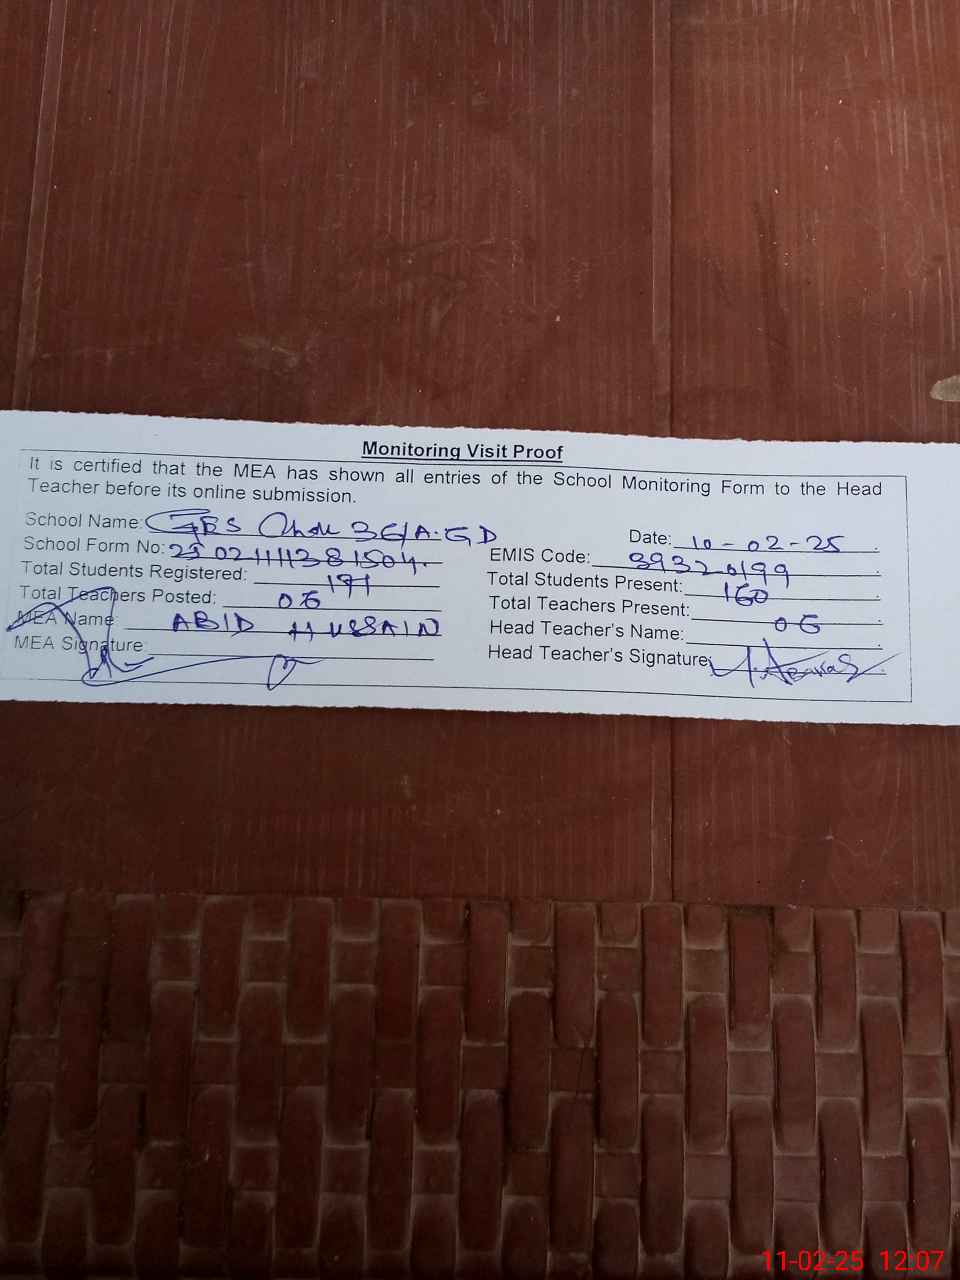 Monitoring Visit Proof
It is certified that the MEA has shown all entries of the School Monitoring Form to the Head
Teacher before its online submission.
School Name: GES Chak 36/A.GD
Date: 10-02-25
School Form No:
EMIS Code: 39320199
Total Students Registered: 171
Total Students Present: 160
Total Teachers Posted: 06
Total Teachers Present: 06
MEA Name: ABID HUSSAIN
Head Teacher's Name:
MEA Signature:
Head Teacher's Signature:
11-02-25 12:07